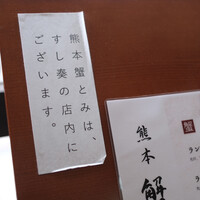 熊本蟹とみは、
すし奏の店内に
ございます。
蟹
熊本
解
ラン
ラ